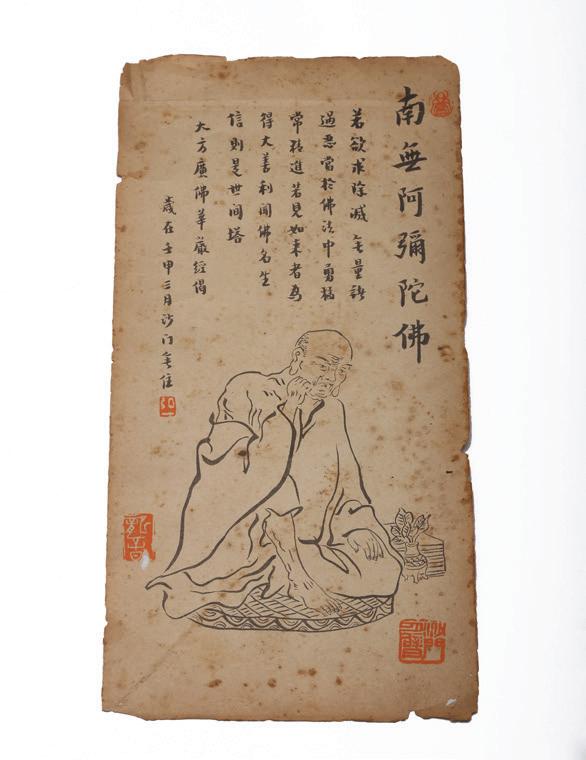 南無阿彌陀佛
若欲求除滅無量諸
過惡當於佛法中勇猛
常精進若見如來者為
得大善利聞佛名生
信則是世间塔
大方廣佛華嚴經偈
歲在壬申三月沙门無住
弘一
沙門